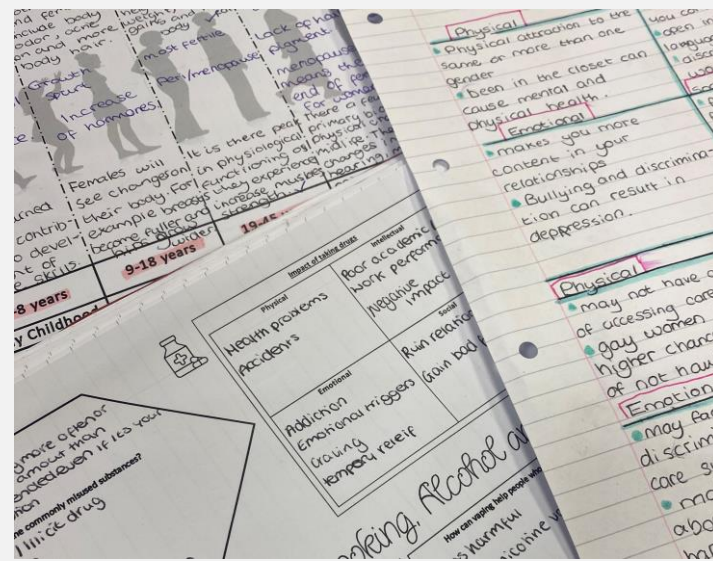 body hair.
Growth
spurt
Increase
of hormones
most fertile
Peri/menopause
Lack of
pigment
menopause
means the
end of
Females will
see changes on
their body. For
example breasts
become fuller and
wider
It is there peak
in physiological
functioning of
they experience
increase muscle
strength
primary
physical
midlife.
changes
hearing
8 years
9-18 years
19-45
y Childhood
Impact of taking drugs
Physical
Health problems
Accidents
Intellectual
Poor academic
work perform
Negative
impact
Emotional
Addiction
Emotional triggers
craving
tempory releif
Social
Ruin relation
Gain bad
more often or
amout than
ended even if its your
ne commonly misused substances?
illicit drug
oking, Alcohol a
How can vaping help people who
s harmful
icotine
Physical
Physical attraction to the
same or more than one
gender
been in the closet can
cause mental and
physical health.
Emotional
makes you more
content in your
relationships
Bullying and discrimina-
tion can result in
depression.
you ca
open
Physical
may not have
of accessing care
gay women
higher chanc
of not hav
Emotion
may fac
discrim
care su
abo